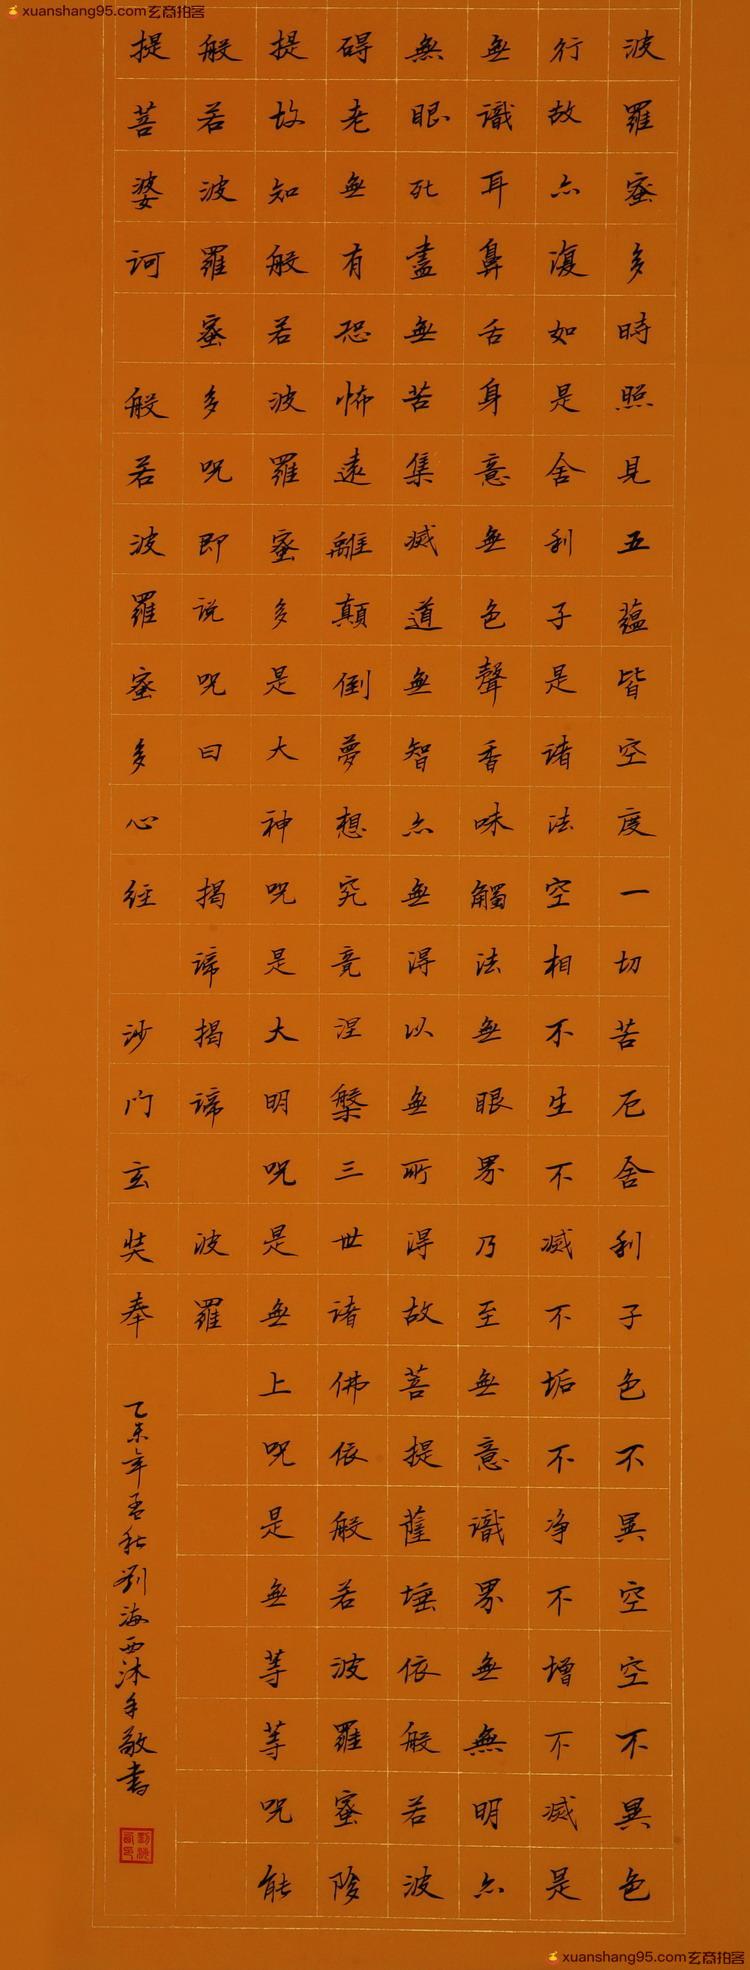 xuanshang95.com玄商拍客
波羅蜜多時照見五蕴皆空度一切苦厄舍利子色不異空空不異色
行故亦復如是舍利子是诸法空相不生不滅不垢不净不增不滅是
無識耳鼻舌身意無色聲香味觸法無眼界乃至無意識界無無明亦
無眼死盡無苦集滅道無智亦無得以無所得故菩提薩埵依般若波
碍老無有恐怖遠離顛倒夢想究竟涅槃三世诸佛依般若波羅蜜陰
提故知般若波羅蜜多是大神咒是大明咒是無上咒是無等等咒能
般若波羅蜜多咒即说咒曰 揭谛揭谛 波羅
提菩婆訶 般若波羅蜜多心经 沙门玄奘奉
乙未年孟秋劉海西沐手敬書
xuanshang95.com玄商拍客